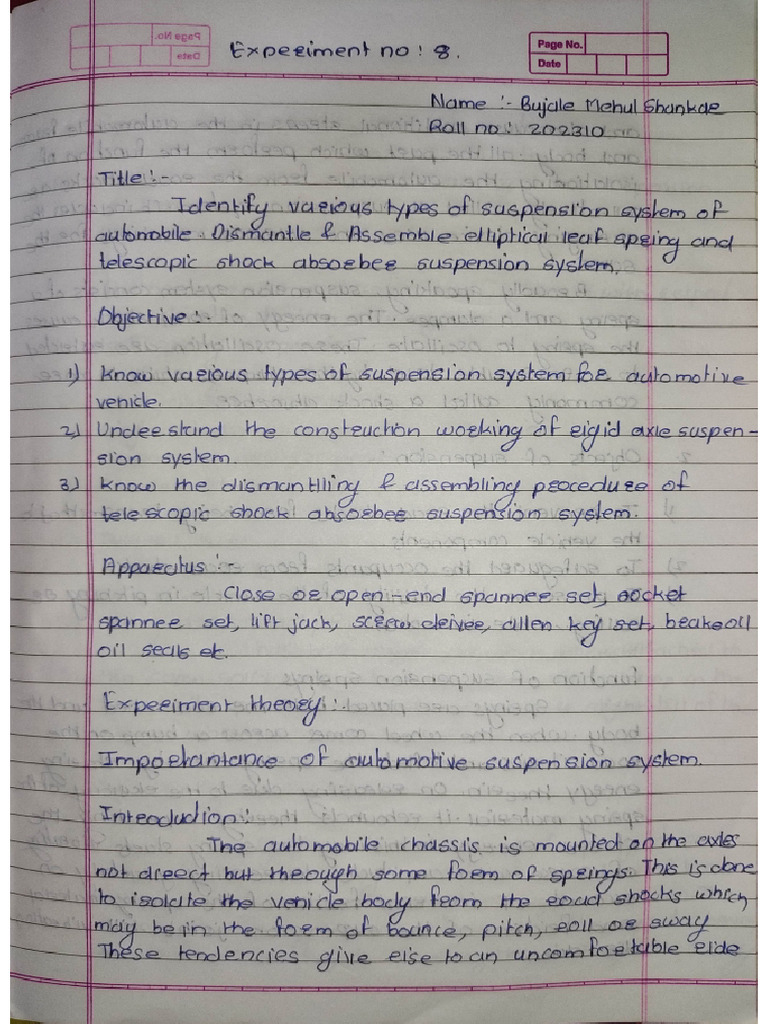 Experiment no : 8.
Page No.
Date
Name :- Bujale Mehul Shankar
Roll no : 202310
Title :-
Identify various types of suspension system of
automobile. Dismantle & Assemble elliptical leaf spring and
telescopic shock absorber suspension system.
Objective :-
1) Know various types of suspension system for automotive
vehicle.
2) Understand the construction working of rigid axle suspen-
sion system.
3) Know the dismantlling & assembling procedure of
telescopic shock absorber suspension system.
Apparatus :-
Close or open-end spanner set, socket
spanner set, lift jack, screw driver, allen key set, brakeoil
oil seals etc.
Experiment theory :-
Importantance of automotive suspension system.
Introduction :-
The automobile chassis is mounted on the axles
not direect but through some form of springs. This is done
to isolate the vehicle body from the road shocks which
may be in the form of bounce, pitch, roll or sway
These tendencies give rise to an uncomfortable ride